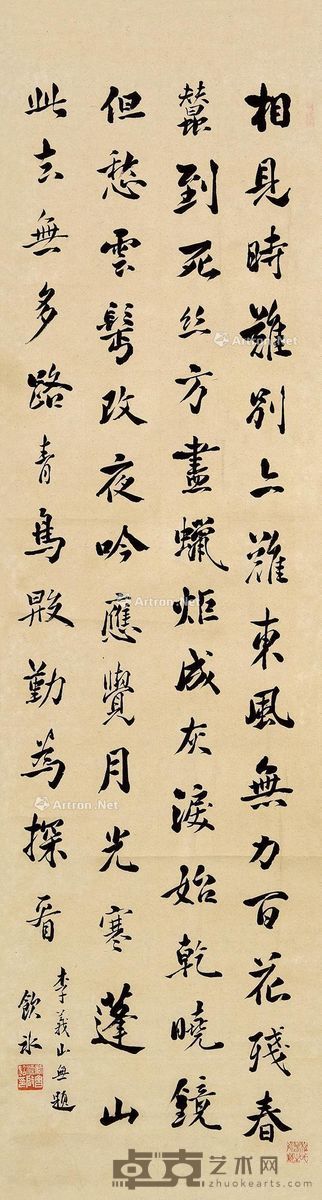 相見時難別亦難東風無力百花殘春
蠶到死丝方盡蠟炬成灰淚始乾曉鏡
但愁雲鬢改夜吟應覺月光寒蓬山
此去無多路青鳥殷勤為探看
李義山無題
飲冰
Artron.Net
Artron.Net
Artron.Net
Artron.Net
卓克艺术网
www.zhuokearts.com